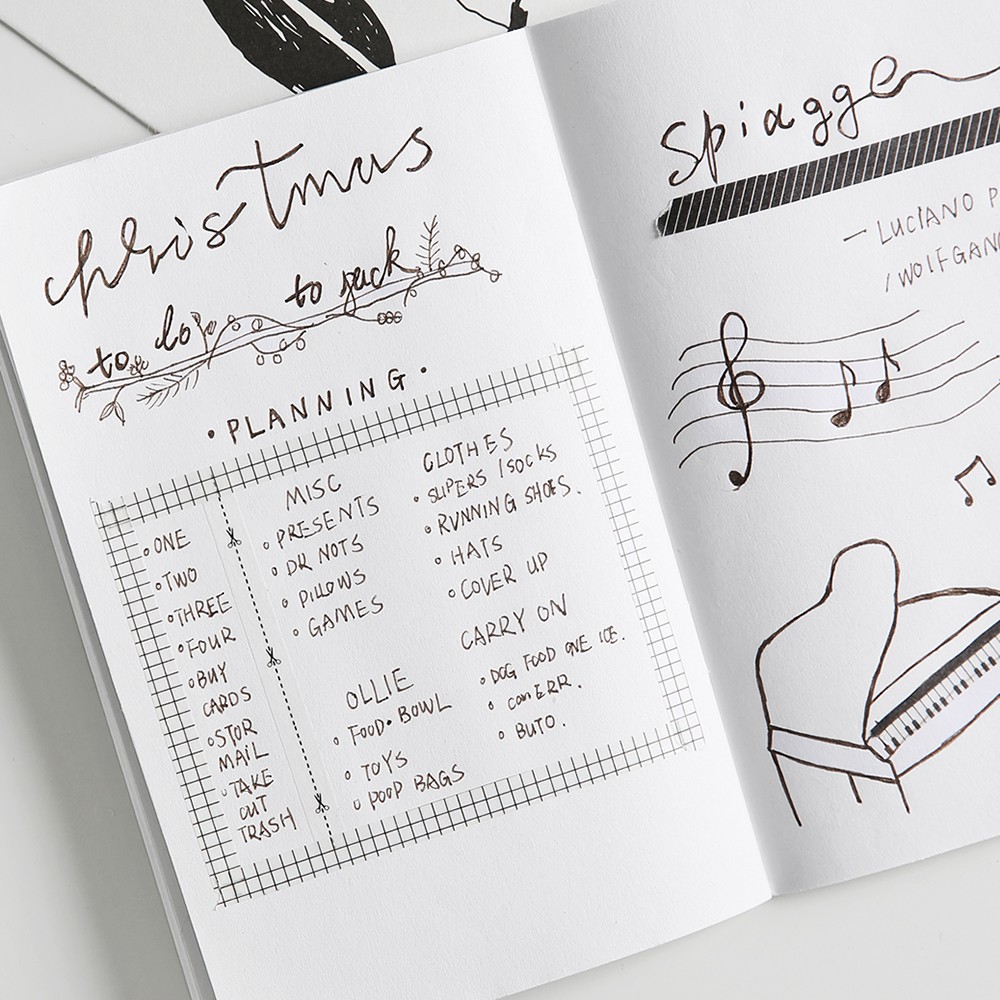 christmas
to do to pack
• PLANNING •
◦ ONE
◦ TWO
◦ THREE
◦ FOUR
◦ BUY
CARDS
◦ STOR
MAIL
◦ TAKE
OUT
TRASH
MISC
◦ PRESENTS
◦ DR NOTS
◦ PILLOWS
◦ GAMES
OLLIE
◦ FOOD• BOWL
◦ TOYS
◦ POOP BAGS
CLOTHES
• SLIPERS / SOCKS
• RUNNING SHOES.
• HATS
• COVER UP
CARRY ON
• DOG FOOD ONE ICE.
• comERR.
• BUTO.
Spiagge
— LUCIANO P
/ WOLFGAN